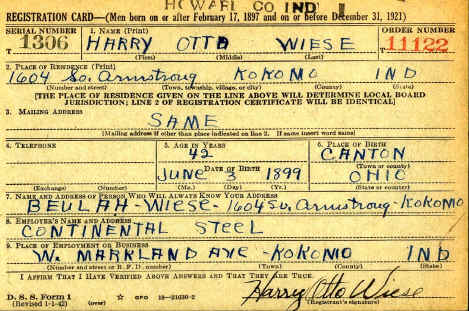 HOWARL CO IND
REGISTRATION CARD—(Men born on or after February 17, 1897 and on or before December 31, 1921)
SERIAL NUMBER 1. NAME (Print) ORDER NUMBER
1306 HARRY OTTO WIESE 11122
(First) (Middle) (Last)
2. PLACE OF RESIDENCE (Print)
1604 So. Armstrong KOKOMO IND
(Number and street) (Town, township, village, or city) (County) (State)
[THE PLACE OF RESIDENCE GIVEN ON THE LINE ABOVE WILL DETERMINE LOCAL BOARD
JURISDICTION; LINE 2 OF REGISTRATION CERTIFICATE WILL BE IDENTICAL]
3. MAILING ADDRESS
SAME
[Mailing address if other than place indicated on line 2. If same insert word same]
4. TELEPHONE 5. AGE IN YEARS 6. PLACE OF BIRTH
42 CANTON
DATE OF BIRTH (Town or county)
JUNE 3 1899 OHIO
(Exchange) (Number) (Mo.) (Day) (Yr.) (State or country)
7. NAME AND ADDRESS OF PERSON WHO WILL ALWAYS KNOW YOUR ADDRESS
BEULAH-Wiese-1604 So. Armstrong-KOKOMO
8. EMPLOYER'S NAME AND ADDRESS
CONTINENTAL STEEL
9. PLACE OF EMPLOYMENT OR BUSINESS
W. MARKLAND AVE-KOKOMO IND
(Number and street or R. F. D. number) (Town) (County) (State)
I AFFIRM THAT I HAVE VERIFIED ABOVE ANSWERS AND THAT THEY ARE TRUE.
D. S. S. Form 1 Harry Otto Wiese
(Revised 1-1-42) (over) ☆ GPO 16—21630-2 (Registrant's signature)